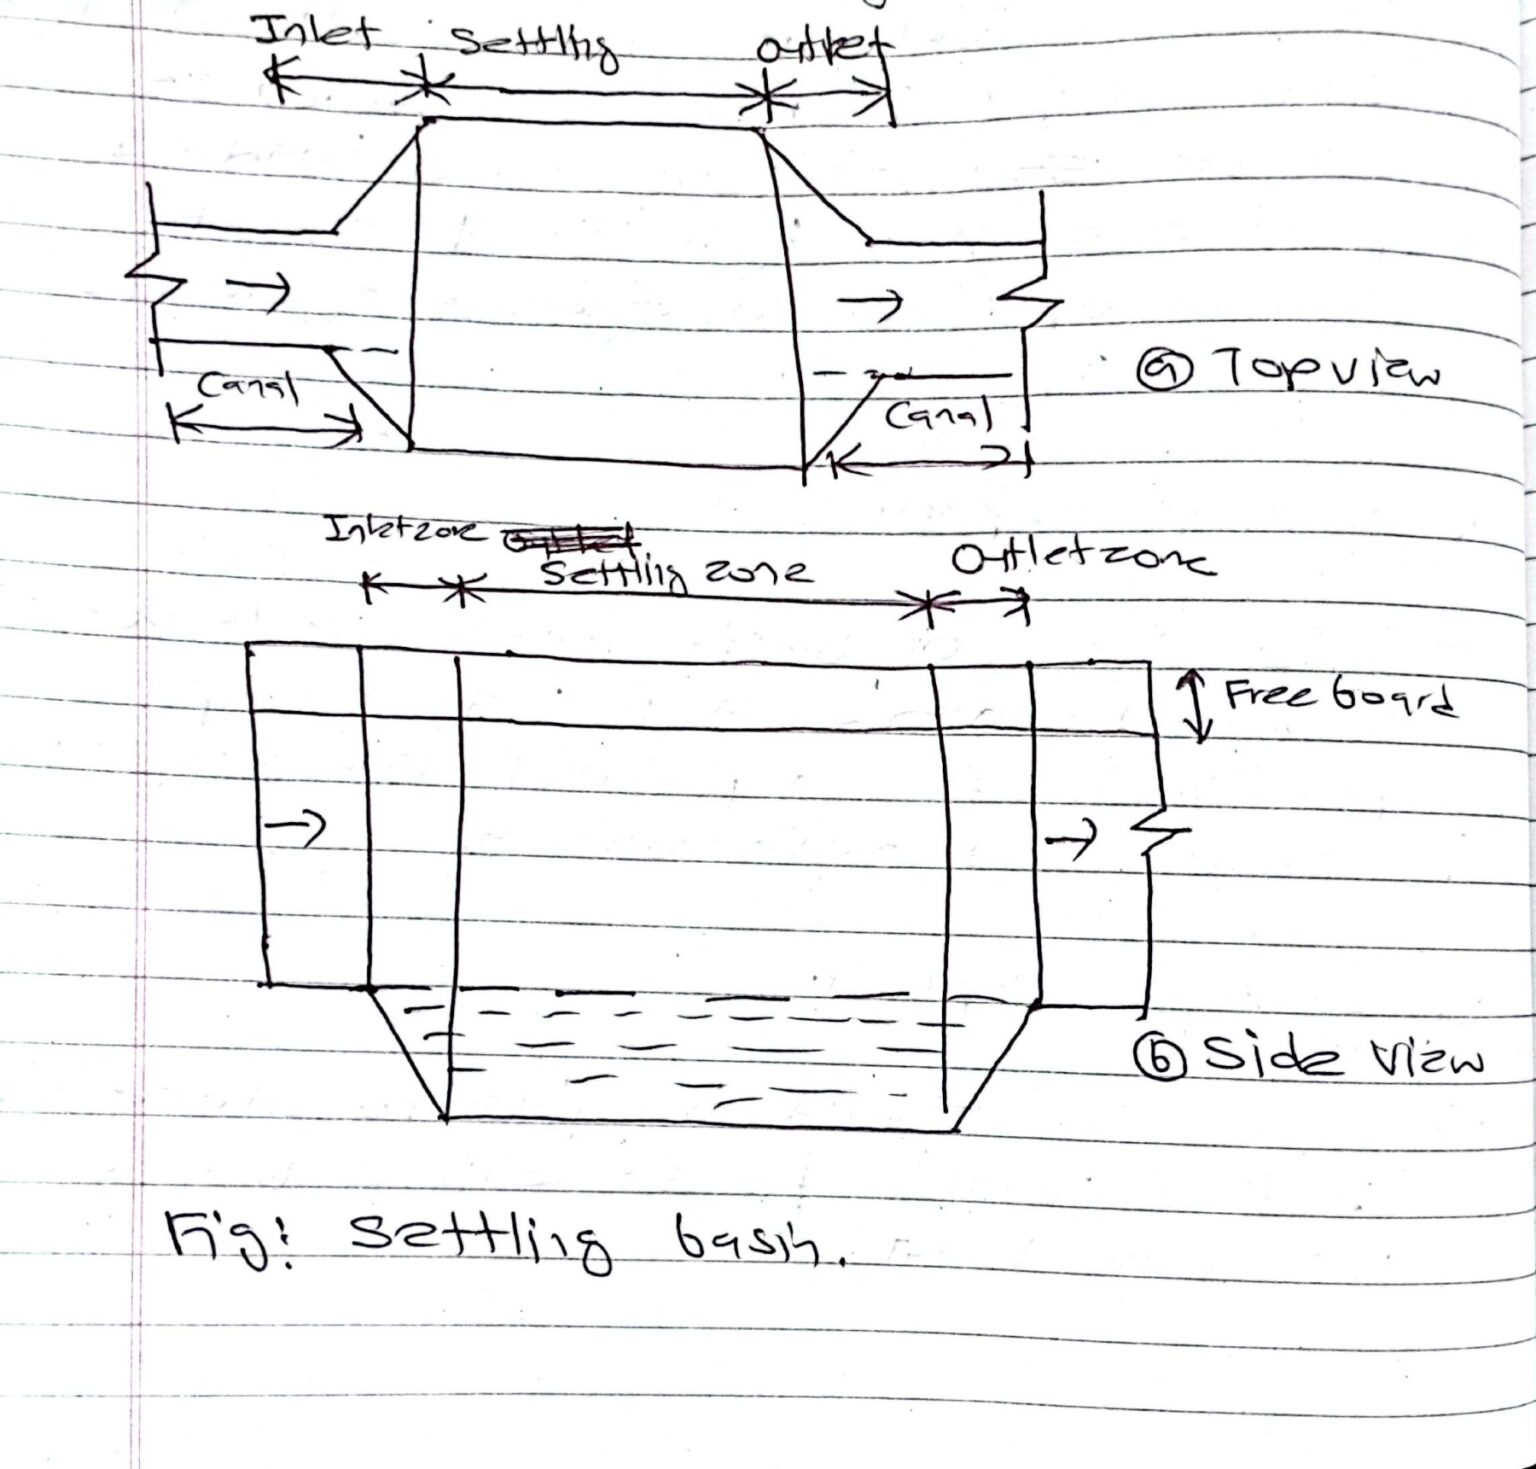 Inlet Settling Outlet
Canal
Canal
ⓐ Top view
Inlet zone
Settling zone
Outlet zone
Free board
ⓑ Side view
Fig: Settling basin.